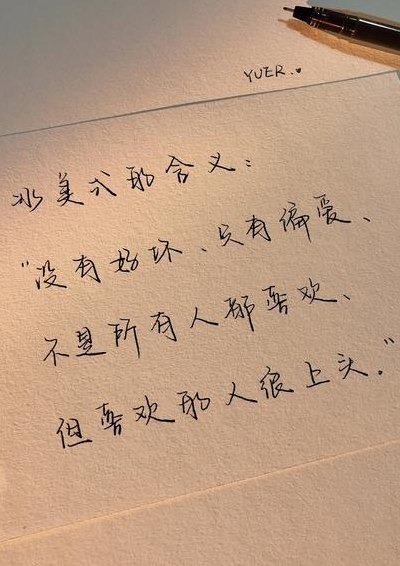 YUER.
冰美式的含义：
“没有好坏、只有偏爱、
不是所有人都喜欢、
但喜欢的人很上头。”